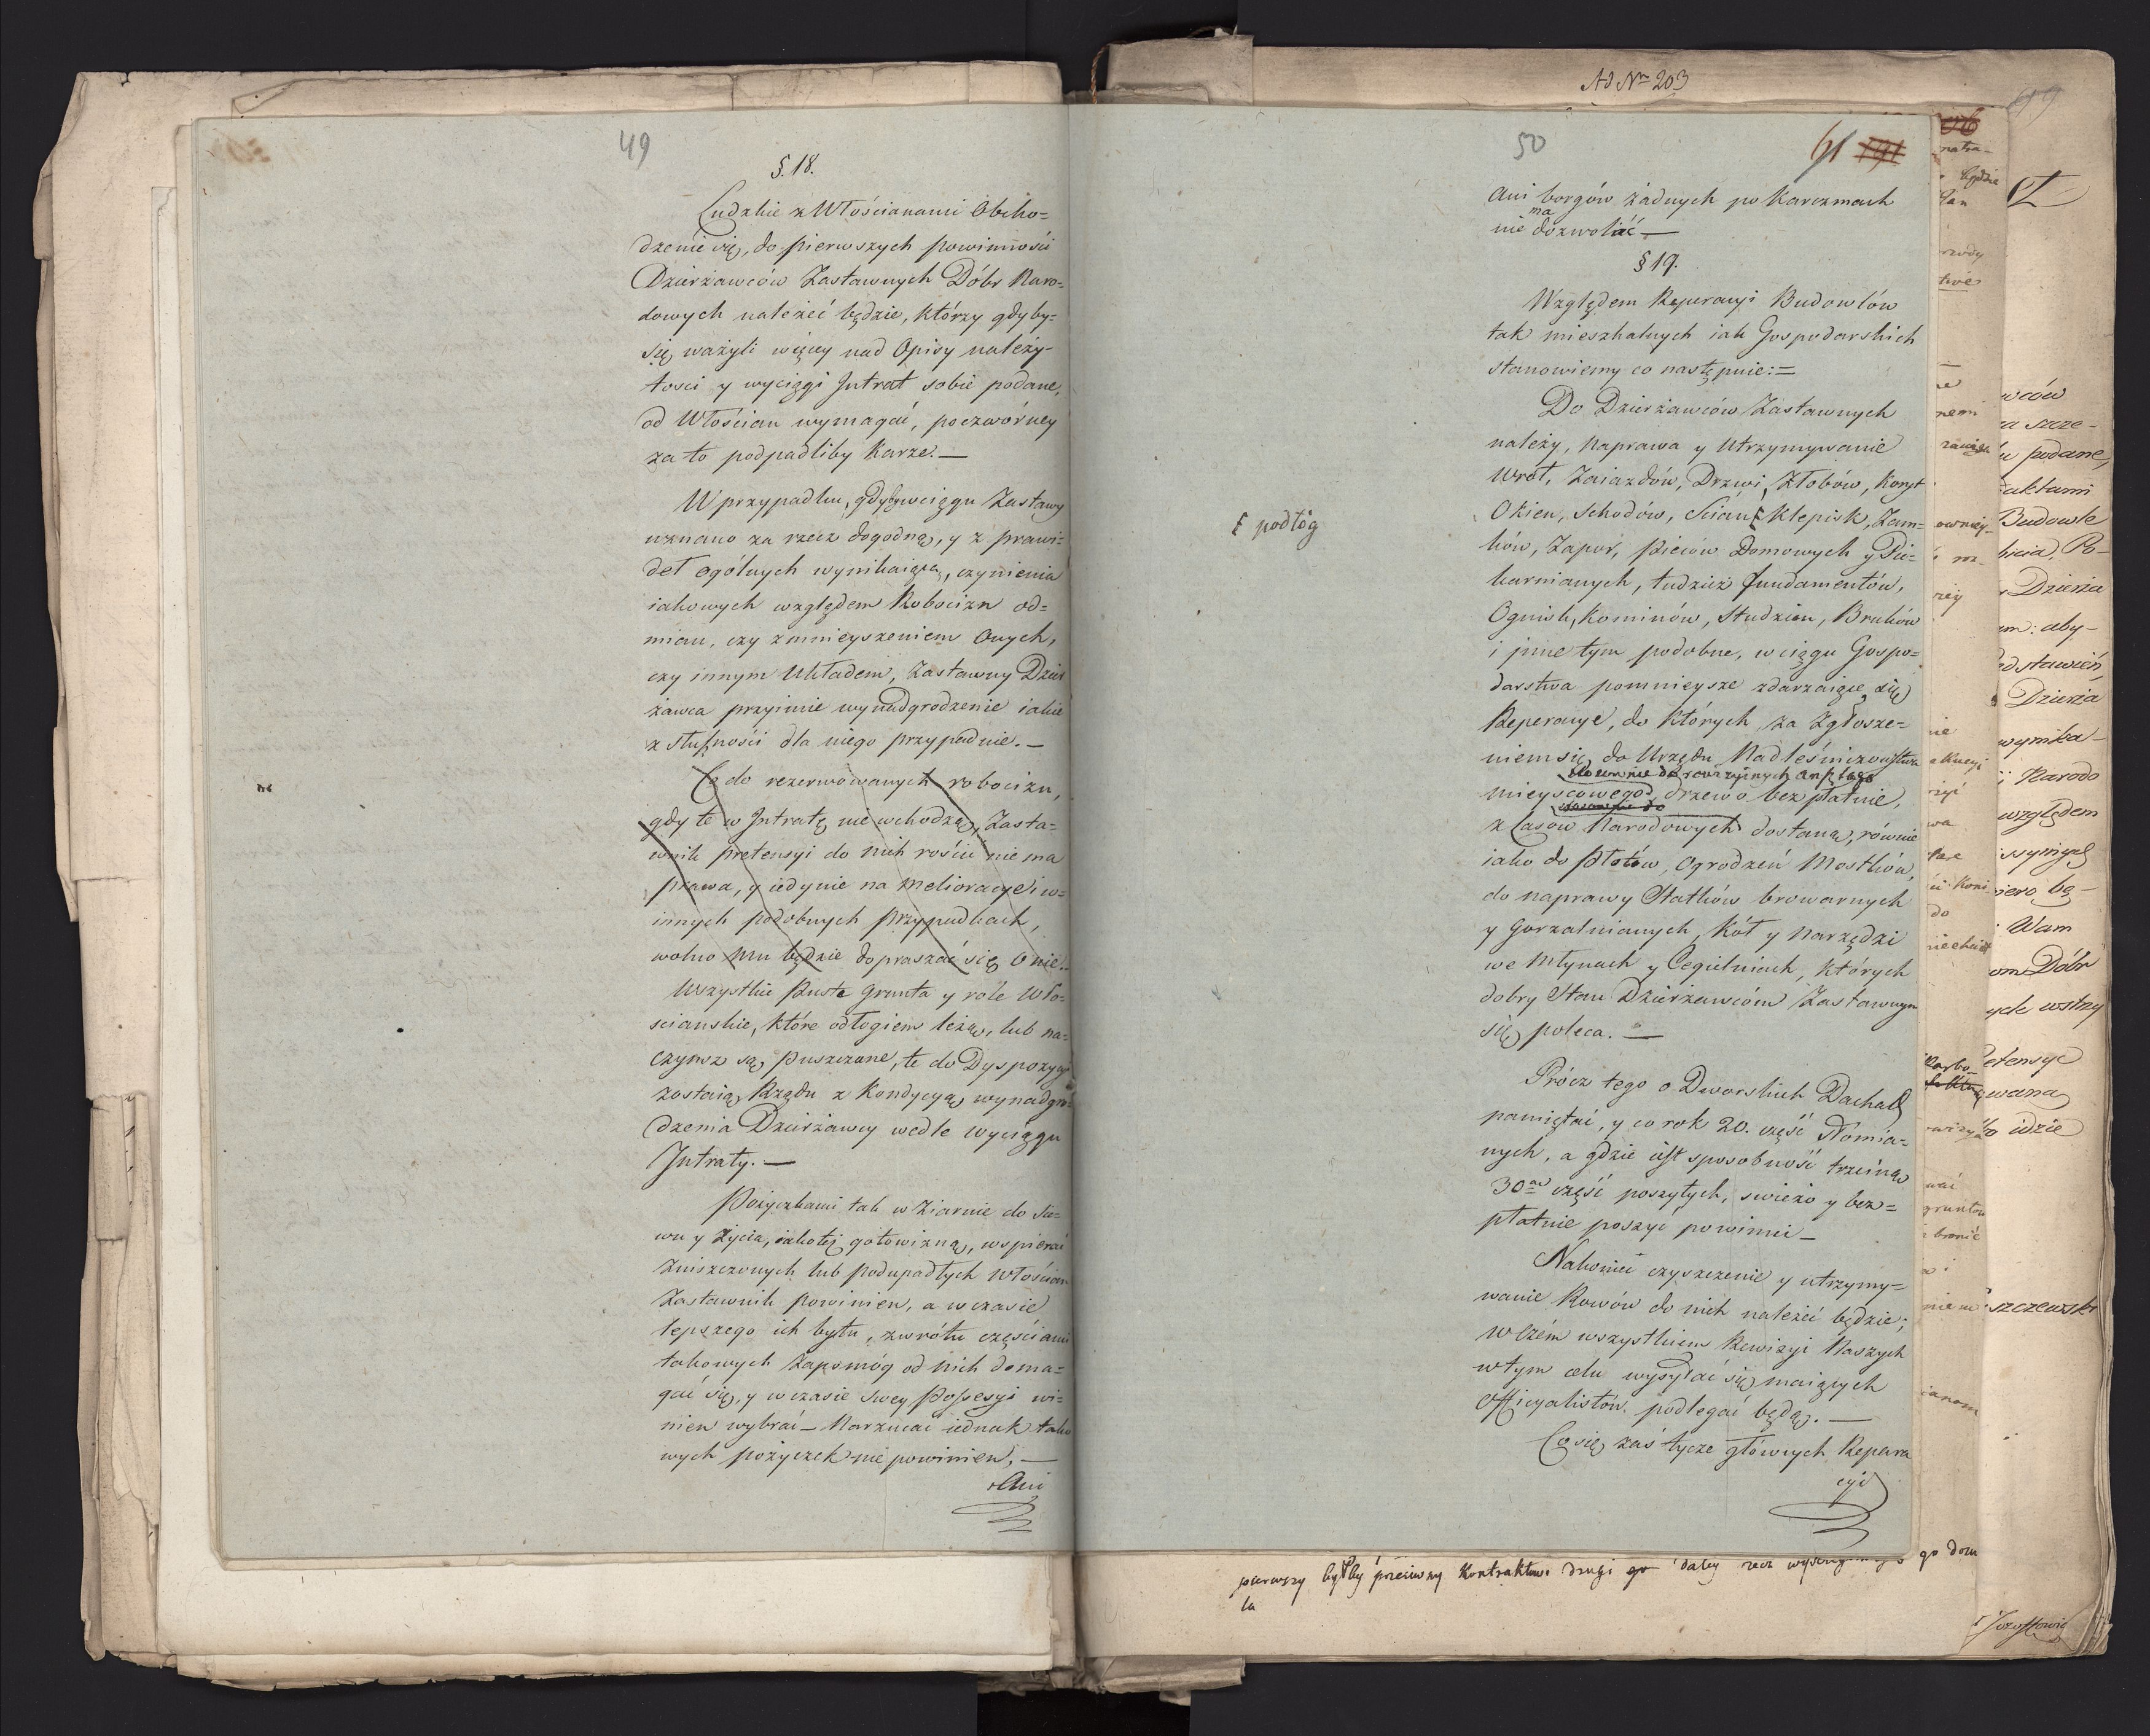 49
§. 18.
Ludzkie z Włościanami Obcho=
dzenie się, do pierwszych powinności
Dzierżawców Zastawnych Dóbr Naro=
dowych należeć będzie, którzy gdyby=
się ważyli więcey nad Opisy należy-
tosci y wyciągi Jntrat sobie podane,
od Włościan wymagać, poczwórney
za to podpadliby Karze. —
W przypadku, gdyby w ciągu Zastawy
uznano za rzecz dogodną, y z prawi=
deł ogólnych wynikaiącą, czynienia
iakowych względem Robocizn od=
mian, czy zmnieyszeniem Onych,
czy innym Układem, Zastawny Dzier
żawca przyimie wynadgrodzenie iakie
z słuszności dla niego przypadnie. —
Co do rezerwowanych robocizn,
gdy te w Jntratę nie wchodzą, Zasta=
wnik pretensyi do nich rościć nie ma
prawa, y iedynie na melioracye i w=
innych podobnych przypadkach,
wolno mu będzie dopraszać się o nie.
Wszystkie puste grunta y role Wło=
scianskie, które odłogiem leżą, lub na=
czynsz są puszczone, te do Dyspozycyi
zostaią Rządu z Kondycyą wynadgro=
dzenia Dzierżawcy wedle wyciągu
Jntraty. —
Pożyczkami tak w Ziarnie do Sie=
wu y Życia, iakoteż gotowizną, wspierać
Zniszczonych lub podupadłych Włościan
Zastawnik powinien, a w czasie
lepszego ich bytu, zwrótu częściami
takowych Zapomóg od nich doma=
gać się, y w czasie swey Possesyi wi=
nien wybrać — Narzucać iednak tako
wych pożyczek nie powinien, —
Ani
Ad Nrn 203
50
61
ani borgów żadnych po Karczmach
ma
nie dozwolić —
§ 19.
Względem Reperacyi Budowlów
tak mieszkalnych iak Gospodarskich
stanowiemy co następuie: =
Do Dzierżawców Zastawnych
należy, Naprawa y Utrzymywanie
Wrót, Zaiazdów, Drzwi, Żłobów, Koryt
Okien, Schodów, Scian, Klepisk, Zam=
podłóg
ków, Zapor, pieców Domowych y Pie=
karnianych, tudzież fundamentów,
Ognisk, Kominów, Studzien, Bruków
i jnne tym podobne, w ciągu Gospo=
darstwa pomnieysze zdarzaiące się
Reperacye, do których za Zgłosze=
niem się do Urzędu Nadleśniczowstwa
mieyscowego, drzewo bezpłatnie,
z Lasow Narodowych dostaną, równie
iako do płotów, Ogrodzeń Mostków,
do naprawy Statków browarnych
y gorzalnianych, Kół y Narzędzi
we Młynach y Cegielniach, których
dobry Stan Dzierżawcóm Zastawnym
się poleca. —
Prócz tego o Dworskich Dachach
pamiętać, y co rok 20. część słomia=
nych, a gdzie iest sposobność trzciną
30ą część poszytych, swieżo y bez=
płatnie poszyć powinni —
Nakoniec czyszczenie y utrzymy=
wanie Rowów do nich należeć będzie;
W czém wszystkiem Rewizyi Naszych
w tym celu wysyłać się maiących
Officyalistów podlegać będą. —
Co się zaś tycze głównych Repera
cyi
pierwszy byłby przeciwny Kontraktowi drugi
la